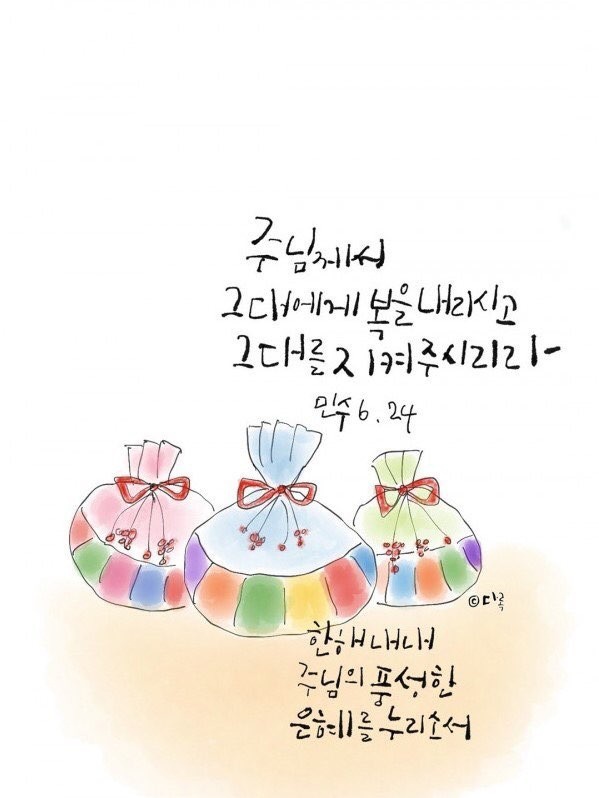 주님께서
그대에게 복을 내리시고
그대를 지켜주시리라
민수 6, 24
©다록
한해 내내
주님의 풍성한
은혜를 누리소서